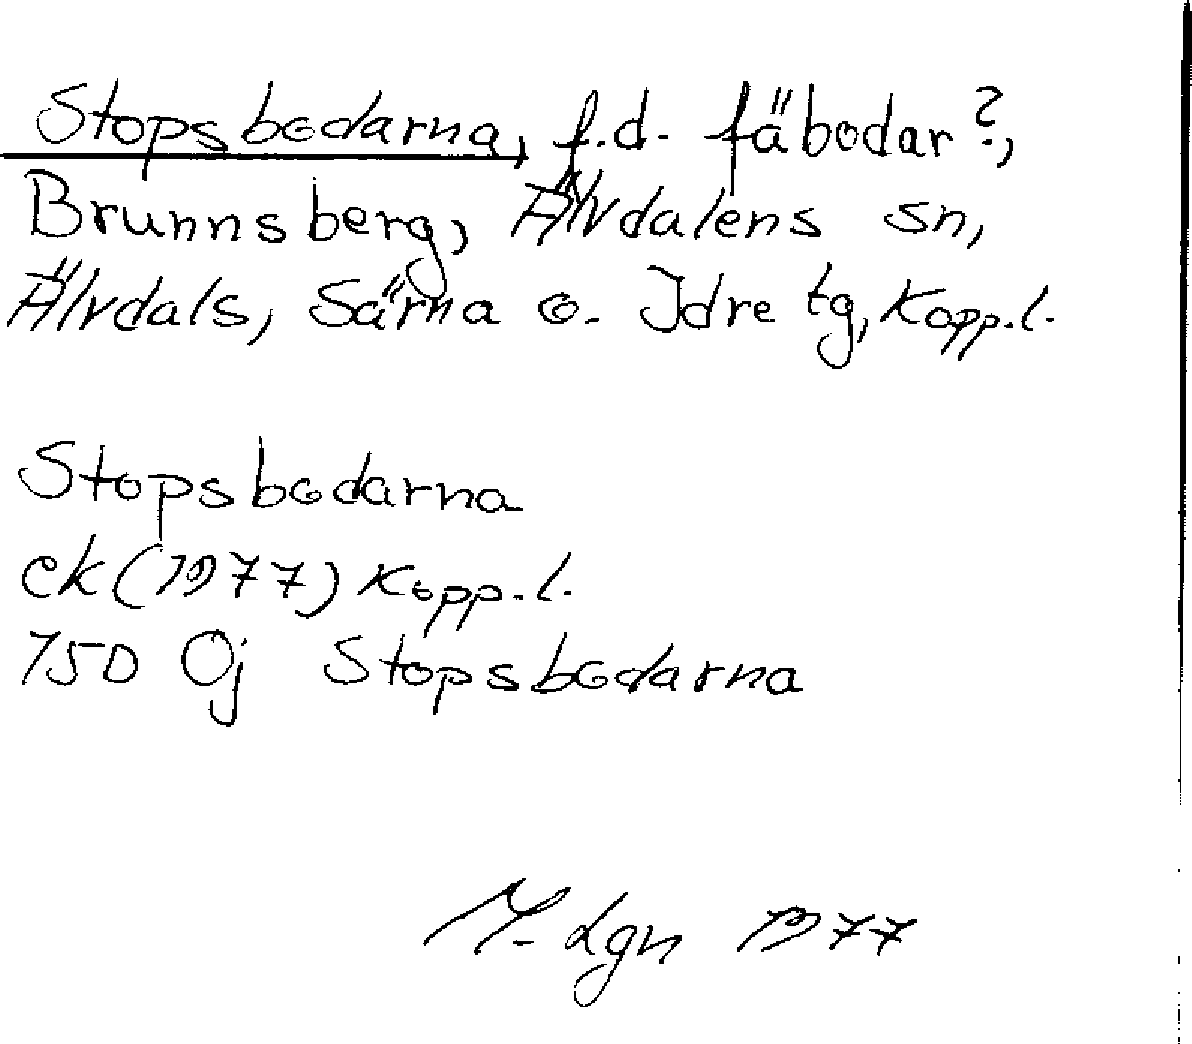 Stopsbodarna, f.d. fäbodar?,
Brunnsberg, Älvdalens sn,
Älvdals, Särna o. Idre tg, Kopp.l.
Stopsbodarna
ek (1977) Kopp.l.
15D Oj Stopsbodarna
M. Lgn 1977